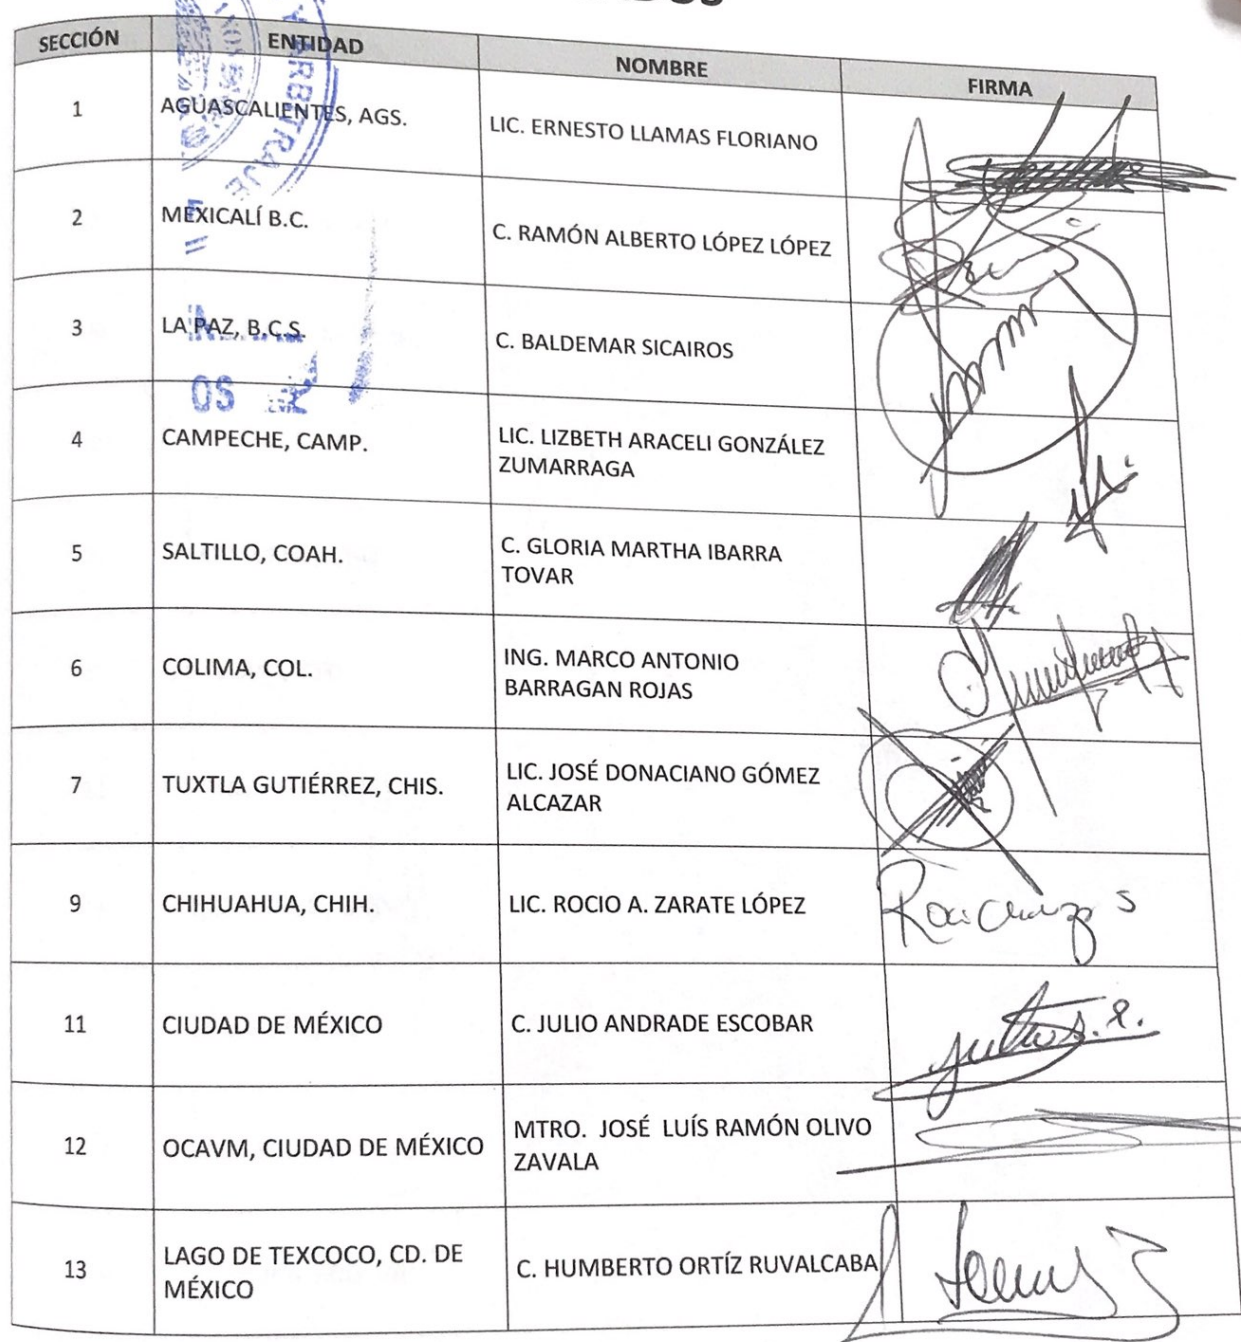 SECCIÓN ENTIDAD NOMBRE FIRMA
1 AGUASCALIENTES, AGS. LIC. ERNESTO LLAMAS FLORIANO
Y ARBITRAJE
2 MEXICALÍ B.C. C. RAMÓN ALBERTO LÓPEZ LÓPEZ
3 LA PAZ, B.C.S. C. BALDEMAR SICAIROS
OS
4 CAMPECHE, CAMP. LIC. LIZBETH ARACELI GONZÁLEZ
ZUMARRAGA
5 SALTILLO, COAH. C. GLORIA MARTHA IBARRA
TOVAR
6 COLIMA, COL. ING. MARCO ANTONIO
BARRAGAN ROJAS
7 TUXTLA GUTIÉRREZ, CHIS. LIC. JOSÉ DONACIANO GÓMEZ
ALCAZAR
9 CHIHUAHUA, CHIH. LIC. ROCIO A. ZARATE LÓPEZ
11 CIUDAD DE MÉXICO C. JULIO ANDRADE ESCOBAR
12 OCAVM, CIUDAD DE MÉXICO MTRO. JOSÉ LUÍS RAMÓN OLIVO
ZAVALA
13 LAGO DE TEXCOCO, CD. DE
MÉXICO C. HUMBERTO ORTÍZ RUVALCABA